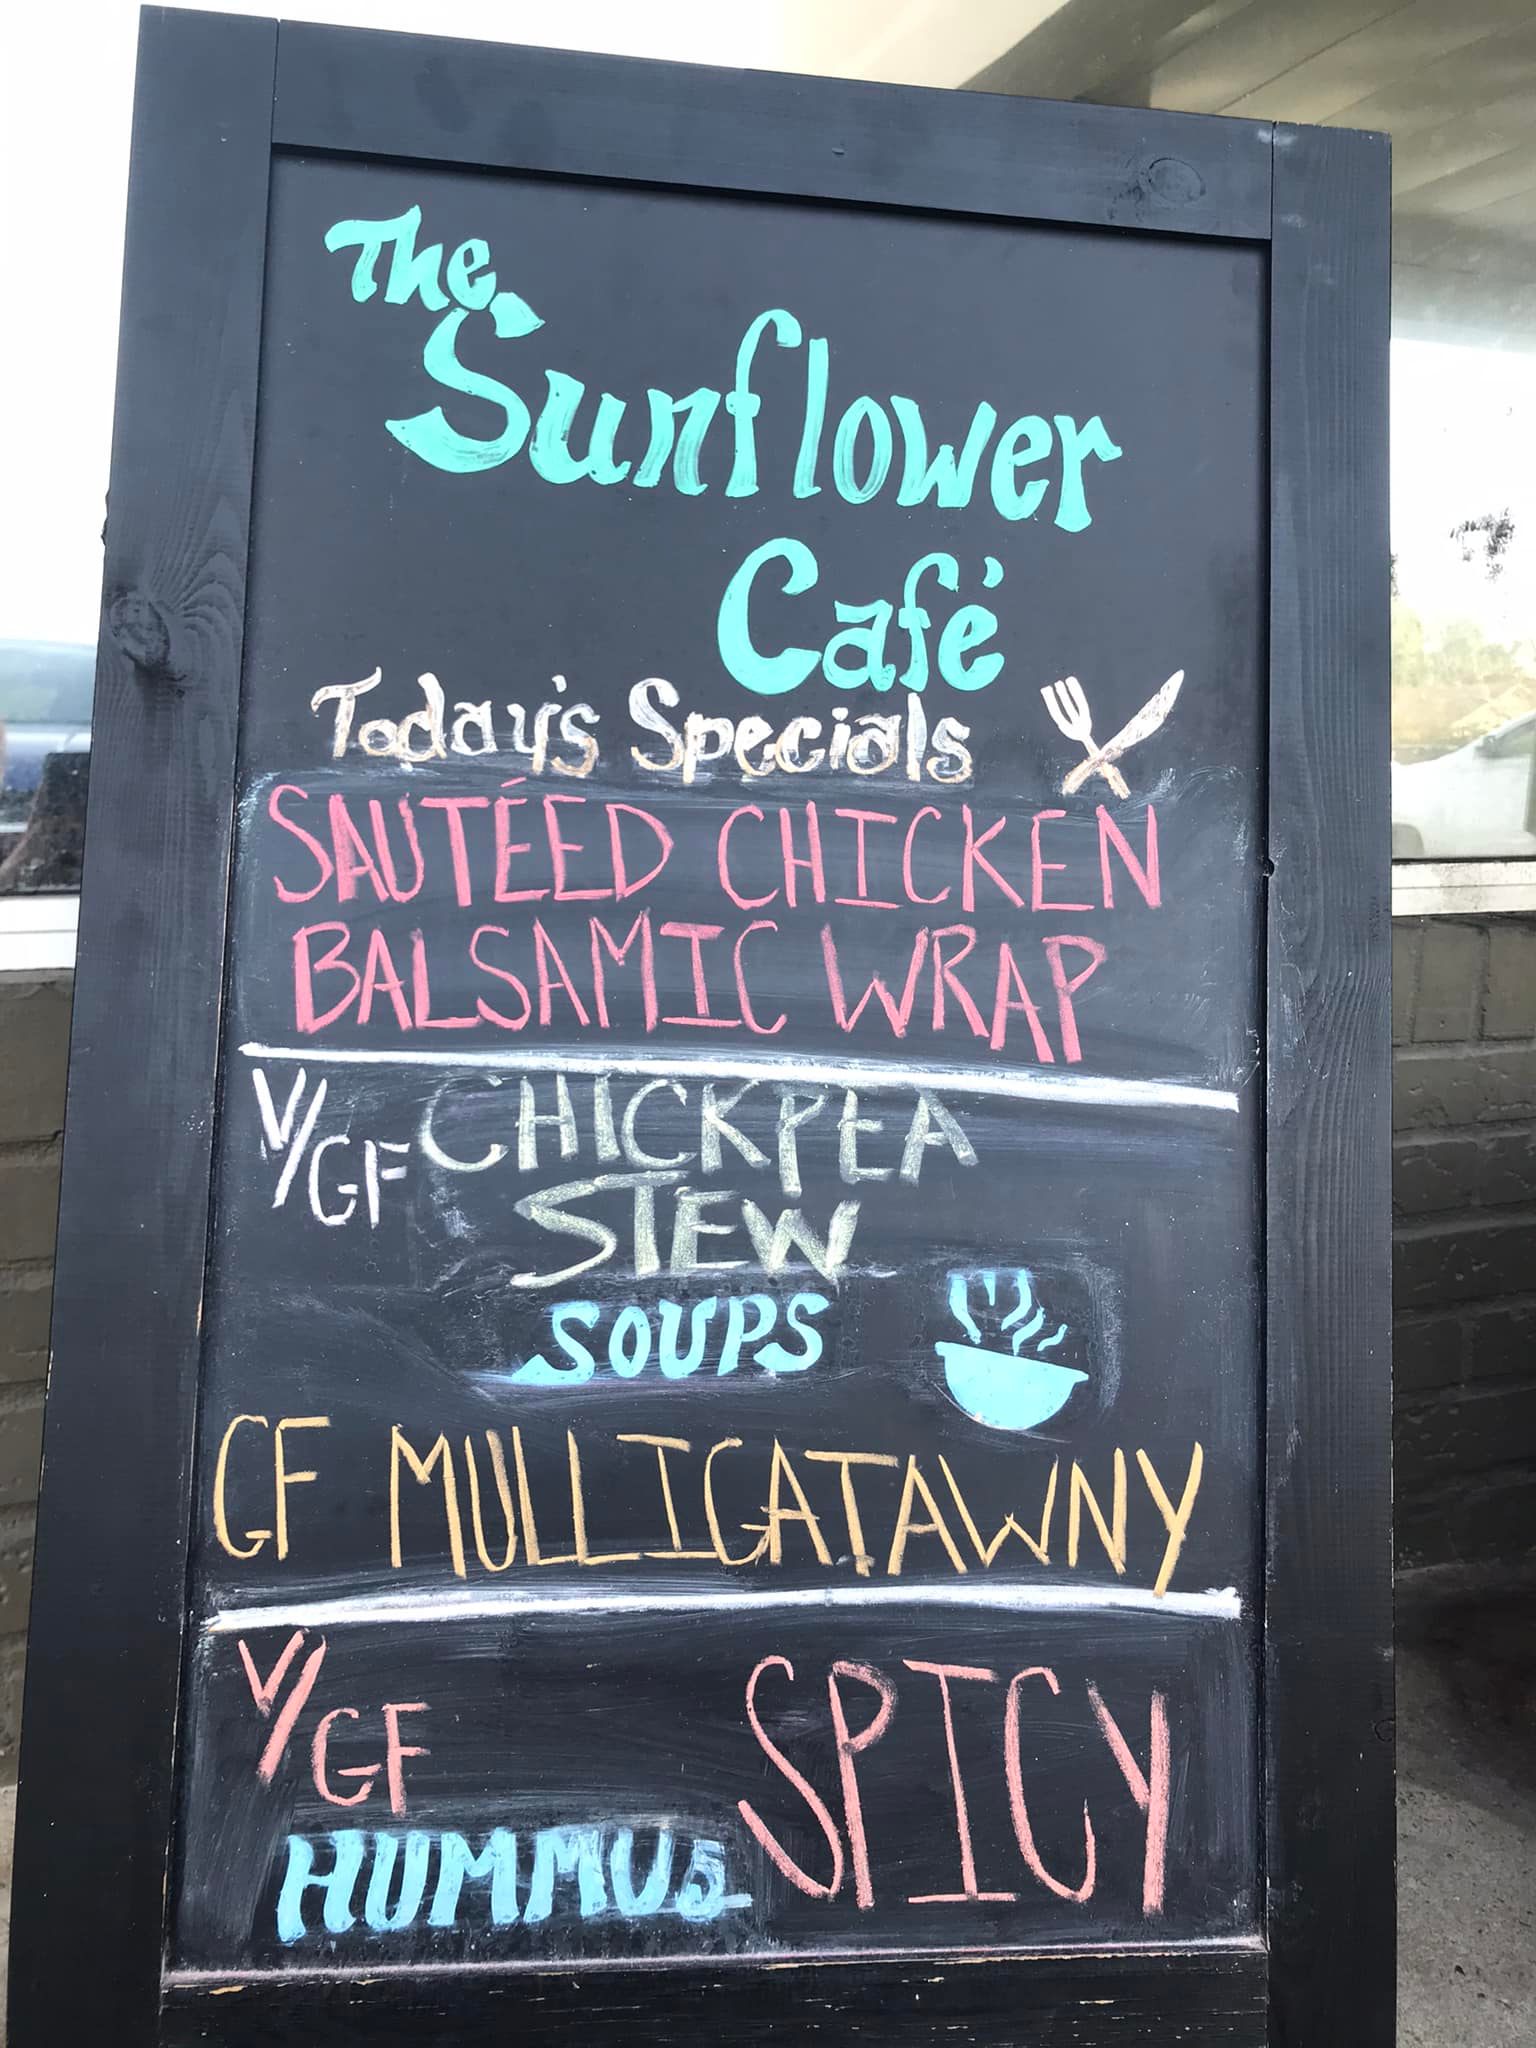 The
Sunflower
Café
Today's Specials
SAUTÉED CHICKEN
BALSAMIC WRAP
V/GF CHICKPEA
STEW
SOUPS
GF MULLIGATAWNY
V/GF SPICY
HUMMUS